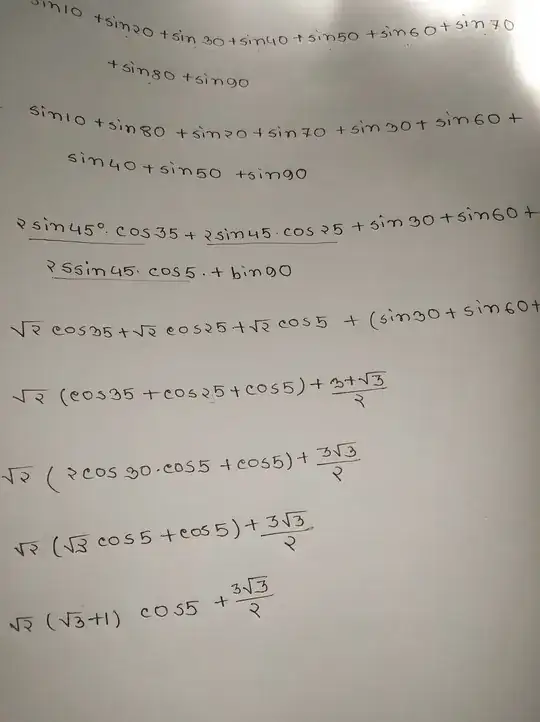 sin10 +sin20 +sin 30 +sin40 + sin50 +sin60 + sin 70
+sin80 +sin90
sin10 +sin80 +sin20+sin70 +sin30+ sin60 +
sin40 +sin50 +sin90
2sin45°. cos35 + 2sin45.cos25 + sin30 +sin60 +
2ssin45. cos5. + bin90
√2 cos35+√2 cos25+√2 cos5 + (sin30+ sin60+
√2 (cos35 +cos25+cos5) + 3+√3/2
√2 ( 2cos30.cos5 +cos5) + 3√3/2
√2 (√3 cos5 +cos5) + 3√3/2
√2 (√3+1) cos5 + 3√3/2